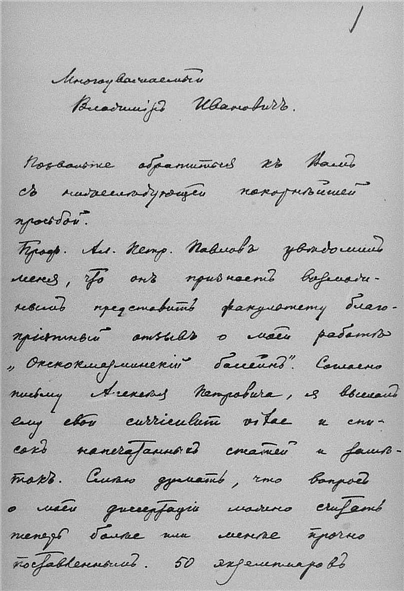 Многоуважаемый
Владиміръ Ивановичъ.
Позвольте обратиться къ Вамъ
съ нижеслѣдующей покорнѣйшей
просьбой.
Проф. Ал. Петр. Павловъ увѣдомилъ
меня, что онъ признаетъ возмож-
нымъ представить факультету благо-
пріятный отзывъ о моей работѣ
„Окскоклязминскій бассейнъ". Согласно
письму Алексея Петровича, я выслалъ
ему свой curriculum vitae и спи-
сокъ напечатанныхъ статей и замѣ-
токъ. Смѣю думать, что вопросъ
о моей диссертаціи можно считать
теперь болѣе или менѣе прочно
поставленнымъ. 50 экземпляровъ